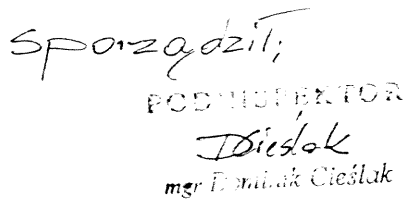 sporządził;
PODINSPEKTOR
DCieślak
mgr Dominik Cieślak